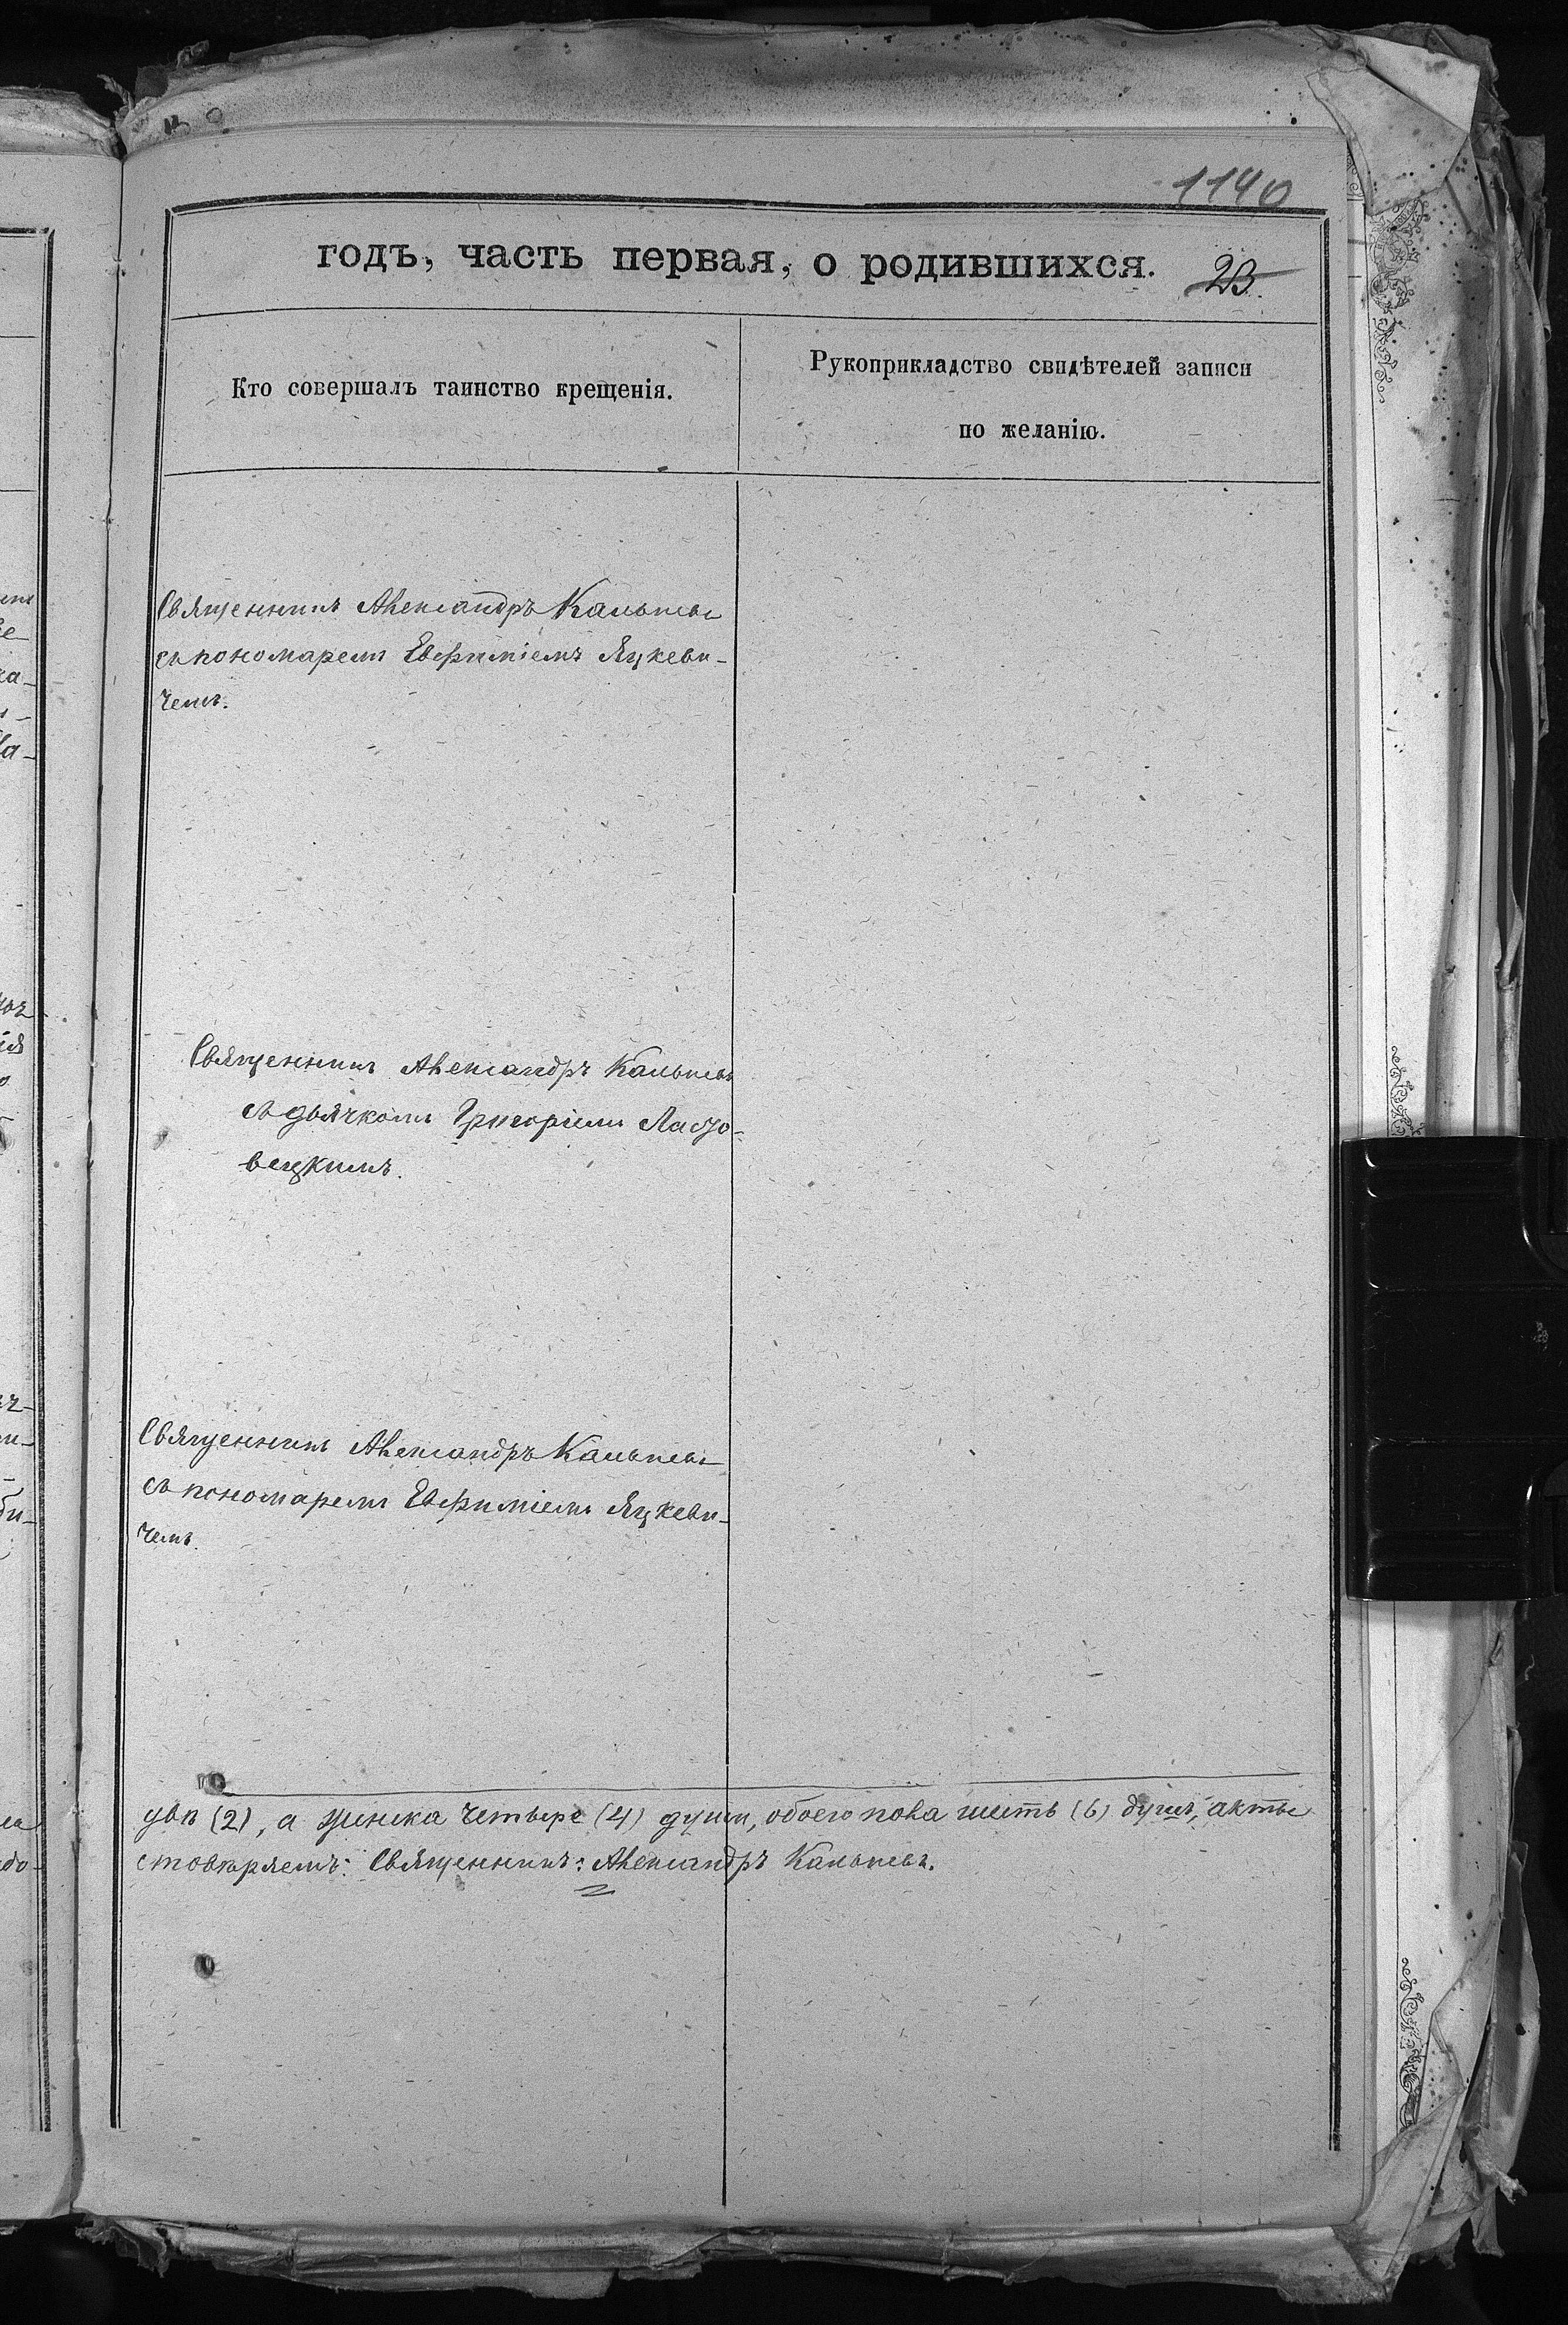 1140
годъ, часть первая, о родившихся. 23.
Кто совершалъ таинство крещенія.
Рукоприкладство свидѣтелей записи
по желанію.
Священникъ Александръ
съ пономаремъ Евфиміемъ Яцкеви-
чемъ.
Священникъ Александръ
съ дьячкомъ Григоріемъ Лазо-
вецкимъ.
Священникъ Александръ
съ пономаремъ Евфиміемъ Яцкеви-
чемъ.
двѣ (2), а женска четыре (4) души, обоего пола шесть (6) душъ,
Священникъ: Александръ